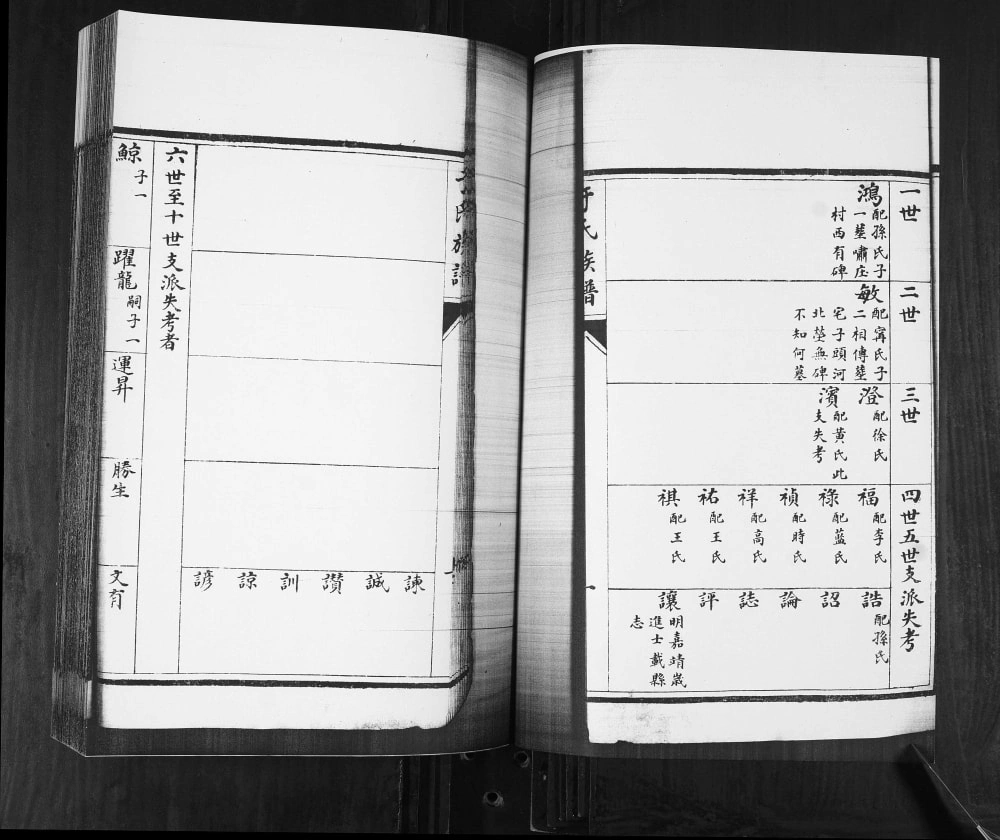 一世
鴻
配孫氏子
一塟嘯庄
村西有碑
二世
敏
配甯氏子
二相傳塟
宅子頭河
北塋無碑
不知何墓
三世
澄
配徐氏
濱
配黃氏此
支失考
四世五世支派失考
福
配李氏
祿
配藍氏
禎
配時氏
祥
配高氏
祐
配王氏
祺
配王氏
誥
配孫氏
詔
論
誌
評
讓
明嘉靖嵗
進士載縣
志
于氏族譜
一
諫
誠
讚
訓
諒
諺
六世至十世支派失考者
鯨
子一
躍龍
嗣子一
運昇
勝生
文育